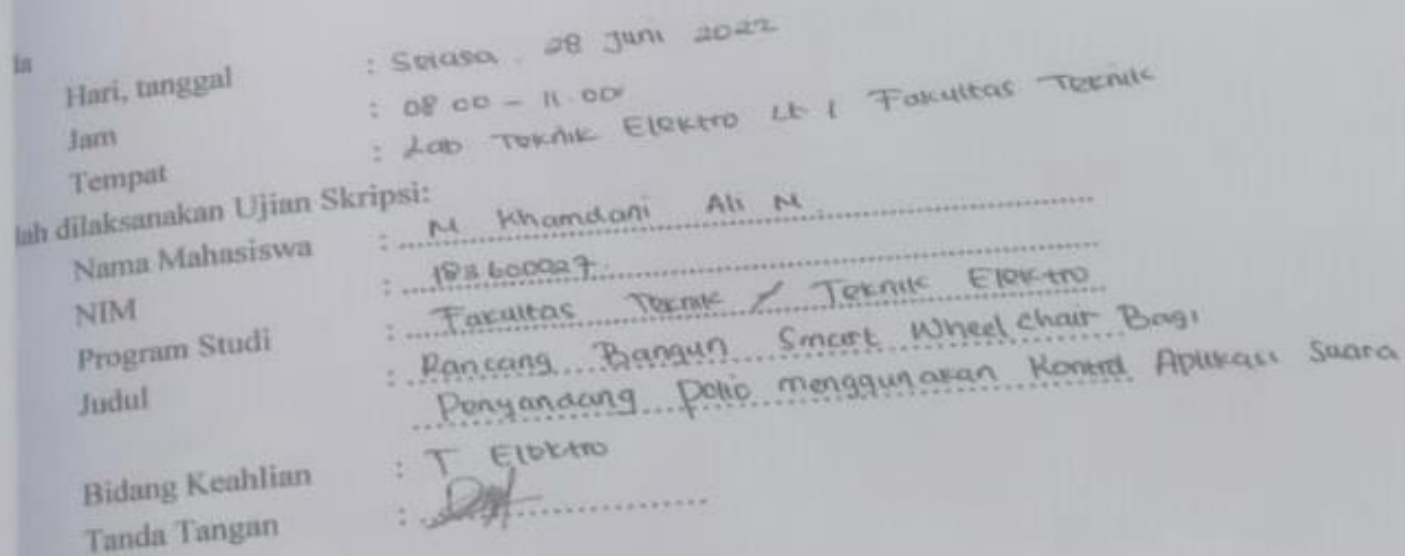 la
Hari, tanggal : Selasa, 28 Juni 2022
Jam : 08.00 - 11.00
Tempat : Lab Teknik Elektro Lt 1 Fakultas Teknik
lah dilaksanakan Ujian Skripsi:
Nama Mahasiswa : M Khamdani Ali M
NIM :
Program Studi : Fakultas Teknik / Teknik Elektro
Judul : Rancang Bangun Smart Wheel Chair Bagi
Penyandang Polio menggunakan Kontrol Aplikasi Suara
Bidang Keahlian : T Elektro
Tanda Tangan :